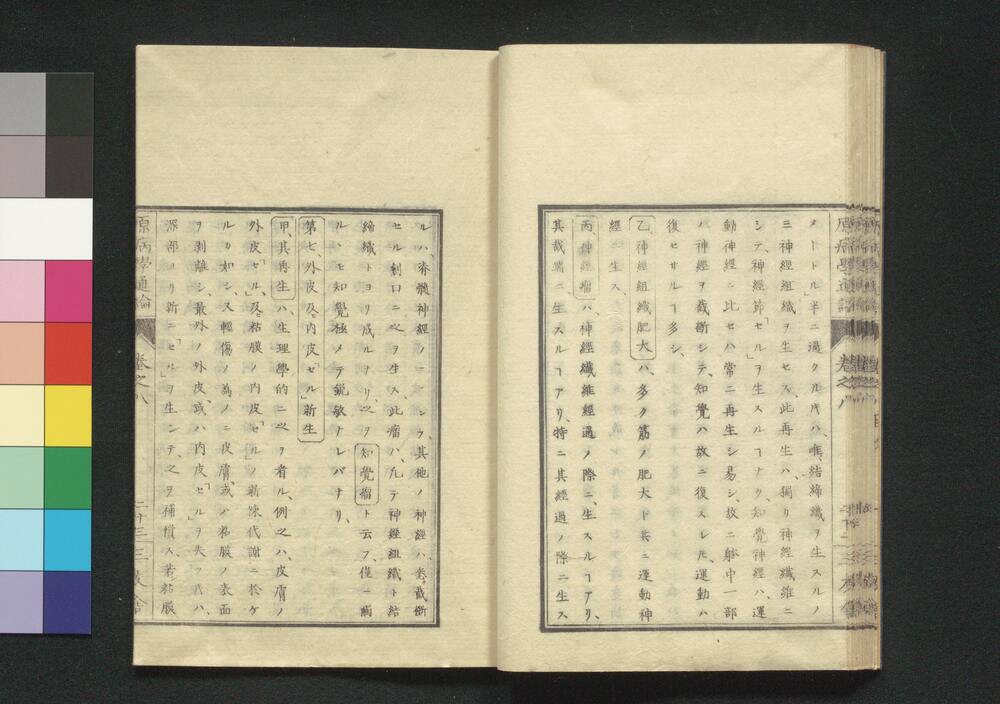 メートル」半ニ過クル時ハ、唯結締織ヲ生スルノ
ミ神經組織ヲ生セス、此再生ハ、獨リ神經纖維ニ
シテ、神經節「セル」ヲ生スルヿナク、知覺神經ハ、運
動神經ニ比セハ常ニ再生シ易シ、故ニ躰中一部
ノ神經ヲ截斷シテ、知覺ハ故ニ復スレ𪜈、運動ハ
復セサルヿ多シ、
乙、神經組織肥大ハ、多ク筋ノ肥大ト共ニ運動神
經ニ生ス、
丙、神經瘤ハ、神經纖維經過ノ際ニ、生スルヿアリ、
其截端ニ生スルヿアリ、特ニ其經過ノ際ニ生ス
原病學通論
卷之八
ルハ、脊髄神經ノミニシテ、其他ノ神經ハ、悉ク截斷
セル創口ニ之ヲ生ス、此瘤ハ、凡テ神經組織ト結
締織トヨリ成ルナリ、之ヲ知覺瘤ト云フ、僅ニ觸
ルヽモ知覺極メテ鋭敏ナレバナリ、
第七、外皮及ヒ内皮「セル」新生
甲、其再生ハ、生理學的ニ之ヲ者ル、例之ハ、皮膚ノ
外皮「セル」及ヒ粘膜ノ内皮「セル」ノ新陳代謝ニ於ケ
ルカ如シ、又輕傷ノ為ノニ皮膚、或ハ粘膜ノ表面
ヲ剥離シ、最外ノ外皮、或ハ内皮「セル」ヲ失フ時ハ、
深部ヨリ新ニ「セル」ヲ生シテ、之ヲ補償ス、若シ粘膜
原病學通論
卷之八
二十三
三